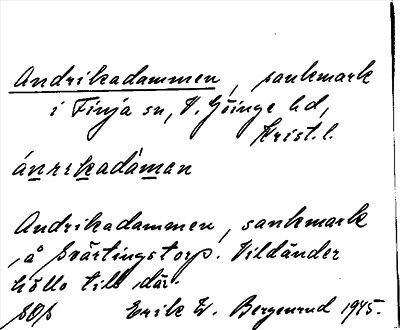 Andrikadammen, sankmark
i Finja sn, V. Göinge hd,
Krist. l.
ánrikadàmən
Andrikadammen, sankmark
å Svärtingstorp. Vildänder
höllo till där.
Erik W. Bergenrud 1945.